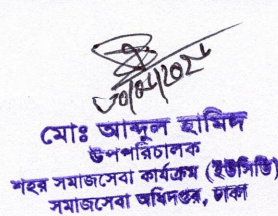 মোঃ আব্দুল হামিদ
উপপরিচালক
শহর সমাজসেবা কার্যক্রম (ইউসিডি)
সমাজসেবা অধিদপ্তর, ঢাকা